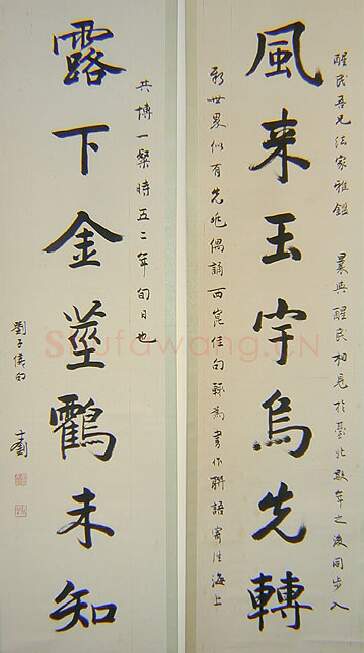 醒民吾兄法家雅鑑 曩與醒民相見於臺北數年之後同步入
風来玉宇烏先轉
新世界似有先兆偶誦西崑佳句輒為書作聯語寄往海上
共博一粲時五二年旬日也
露下金莖鸖未知
劉子儀句
Shufawang.CN